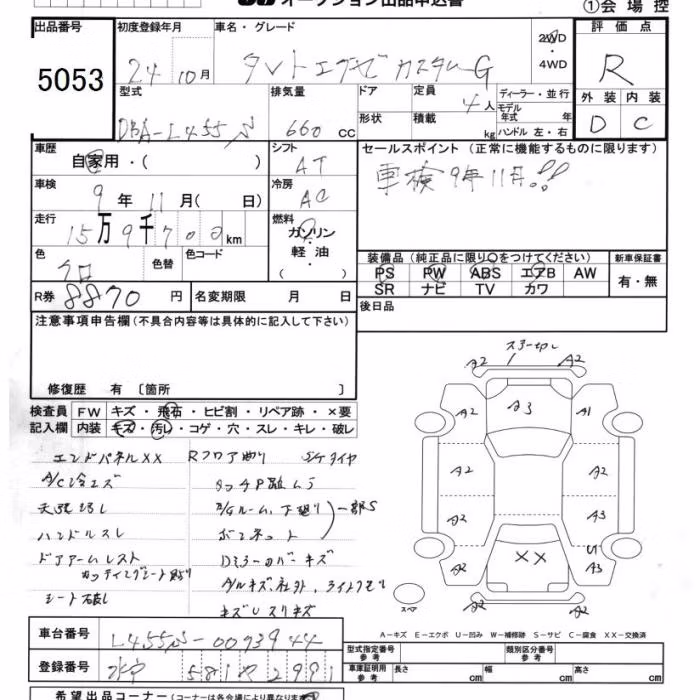 オークション出品申込書
①会場控
出品番号 初度登録年月 車名・グレード 2WD 評価点
5053 24 10月 タントエグゼカスタムG 4WD R
型式 排気量 ドア 定員 4人 ディーラー・並行 外装 内装
DBA-L455S 660 CC 形状 積載 kg モデル年式 年 ハンドル 左・右 D C
車歴 自家用・( ) シフト AT セールスポイント(正常に機能するものに限ります)
車検 9年 11月( 日) 冷房 AC 車検9年11月!!
走行 15万9千700km 燃料 ガソリン・軽油・( )
色 クロ 色替 色コード 装備品(純正品に限り○をつけてください) 新車保証書
PS PW ABS エアB AW 有・無
SR ナビ TV カワ
R券 8870円 名変期限 月 日 後日品
注意事項申告欄(不具合内容等は具体的に記入して下さい)
修復歴 有 〔箇所 〕
検査員 FW キズ・飛石・ヒビ割・リペア跡・×要
記入欄 内装 キズ・汚れ・コゲ・穴・スレ・キレ・破レ
エンドパネルXX Rフロア曲り
A/C冷エズ
天張汚レ 下廻り 一部S
ハンドルスレ ボンネット
ドアアームレスト Dミラーカバーキズ
カッティングシート貼り アルキズ、社外、
シート破レ キズUスリキズ
A2 A2
A2 A3 A1
A2 A2
A2 A3
XX U1
A2 A2 A3
スペア
A-キズ E-エクボ U-凹み W-補修跡 S-サビ C-腐食 XX-交換済
車台番号 L455S-0073944
登録番号 581 2991
型式指定番号 参考 類別区分番号 参考
車庫証明用 参考 長さ cm 幅 cm 高さ cm
希望出品コーナー(コーナーは各会場により異なりますの